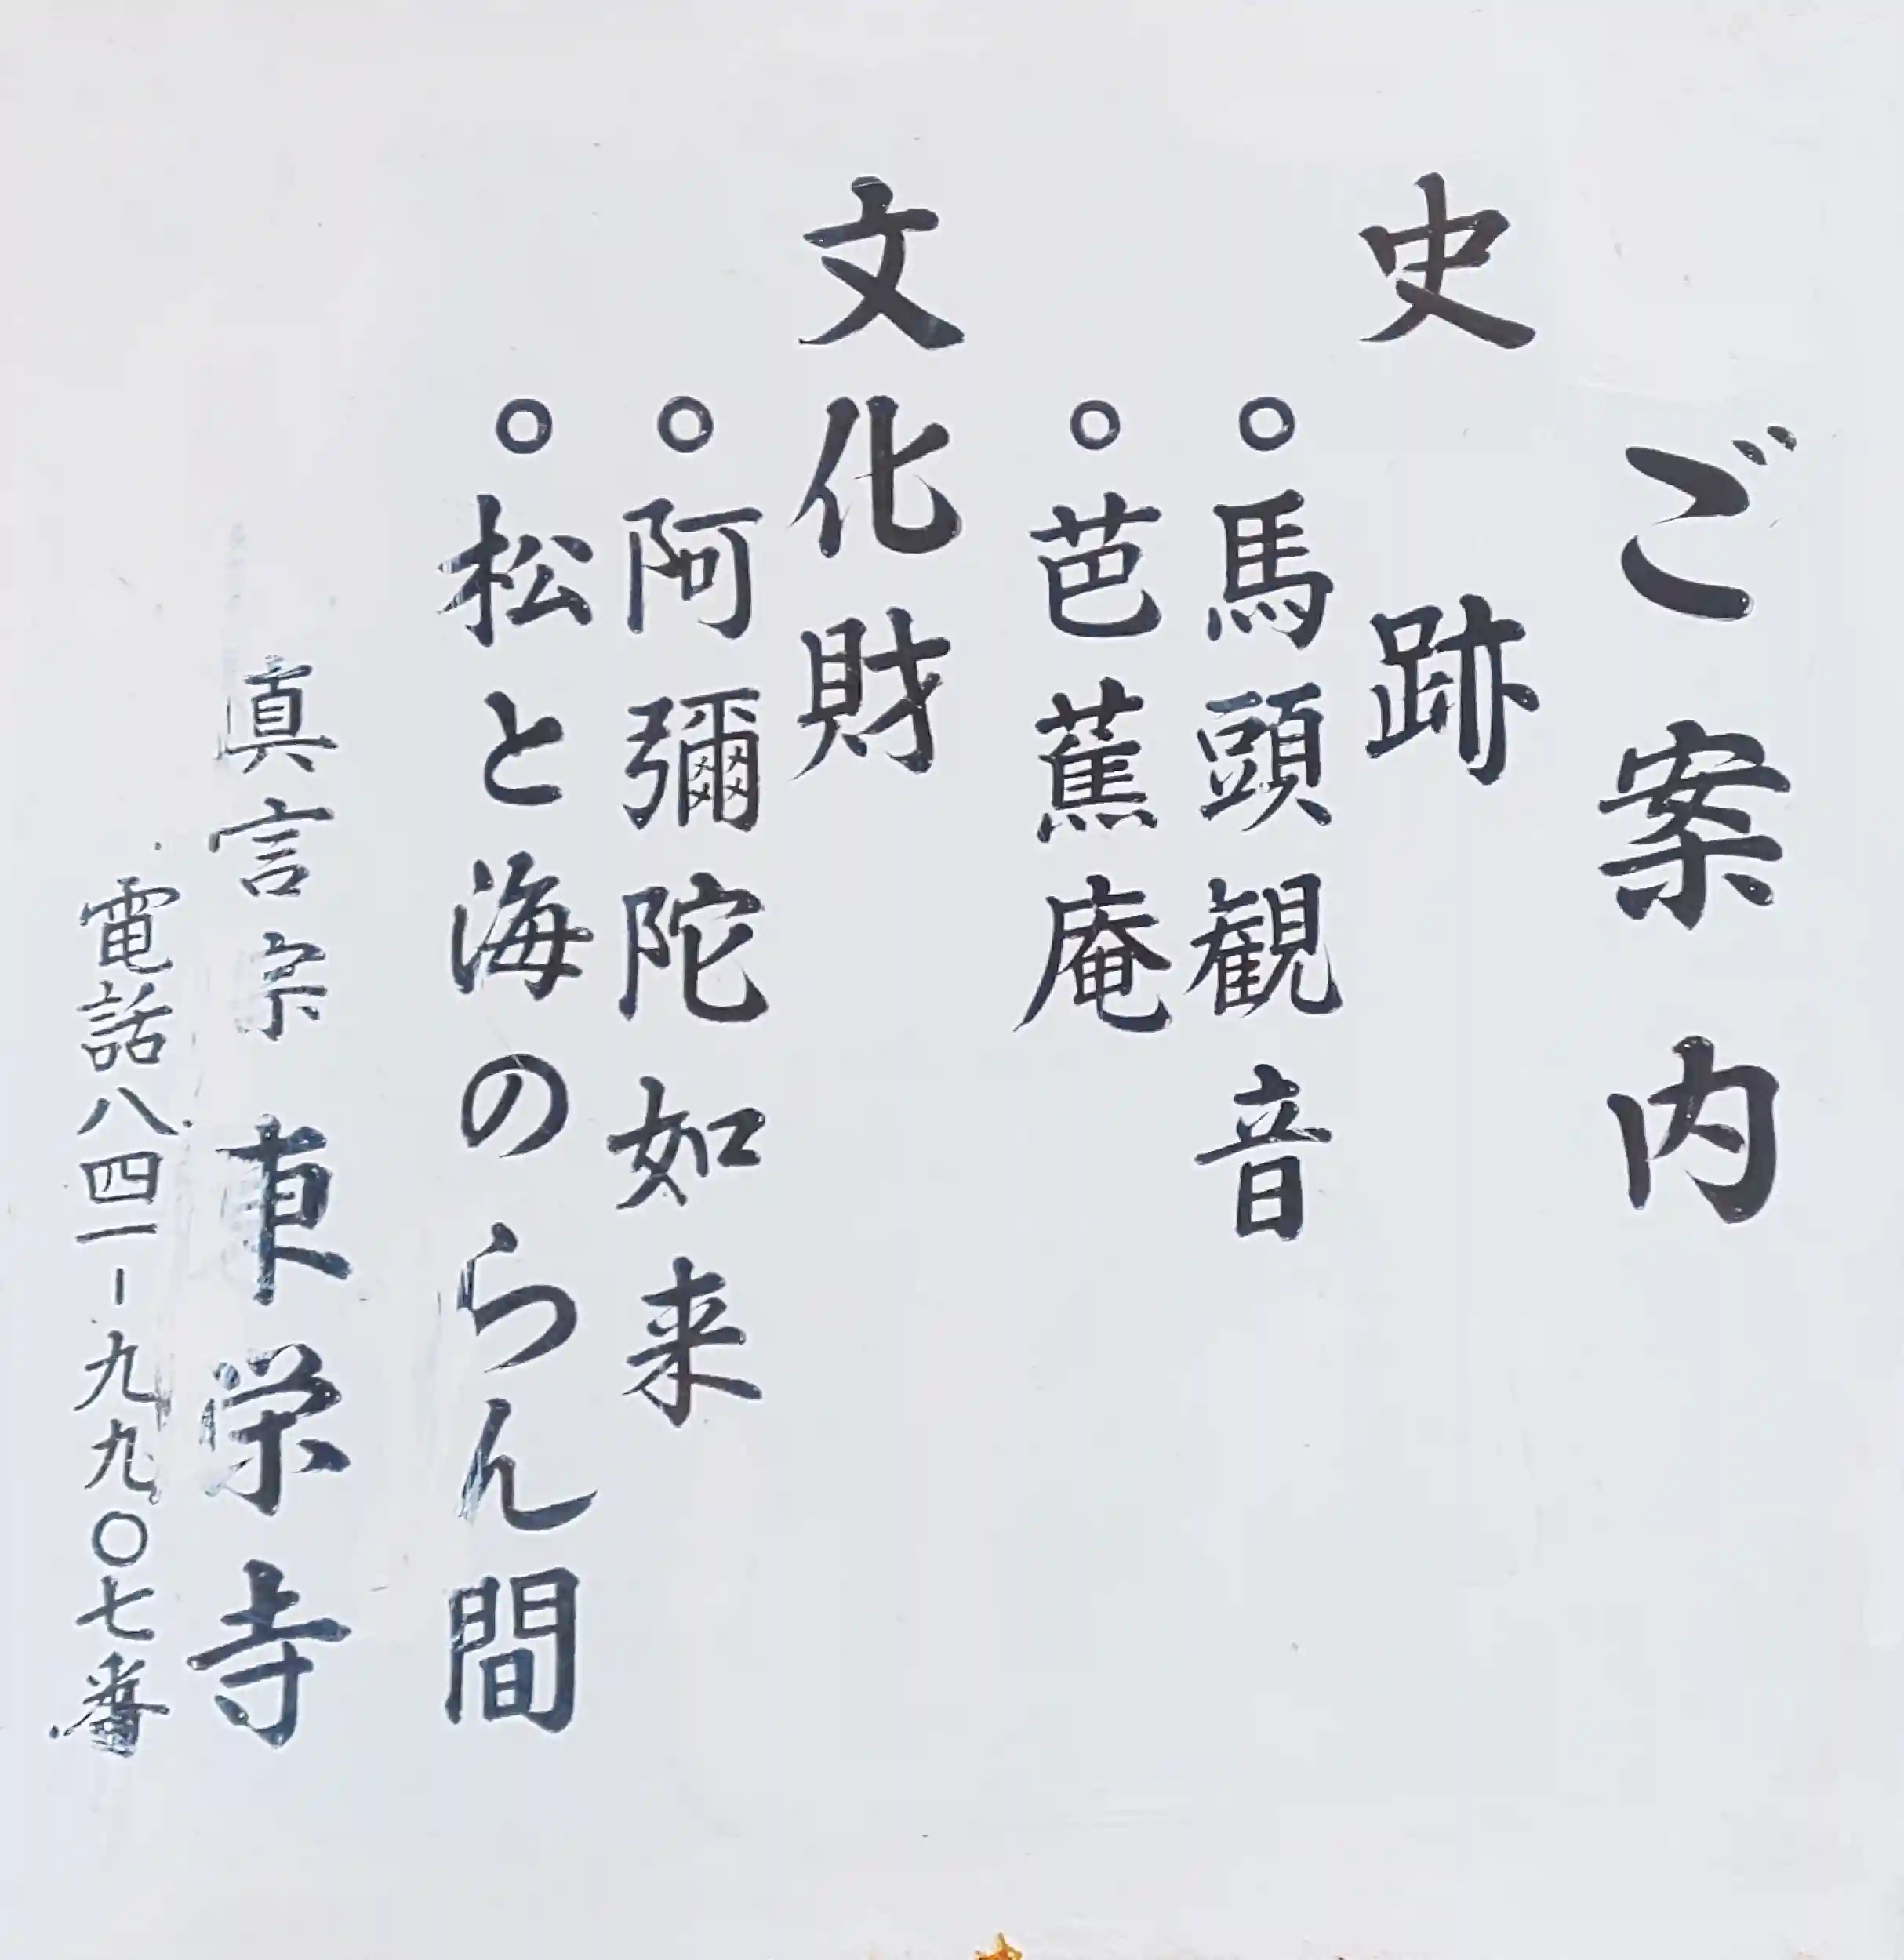 ご案内
史跡
○馬頭観音
○芭蕉庵
文化財
○阿彌陀如来
○松と海のらん間
真言宗 東栄寺
電話八四一-九九〇七番